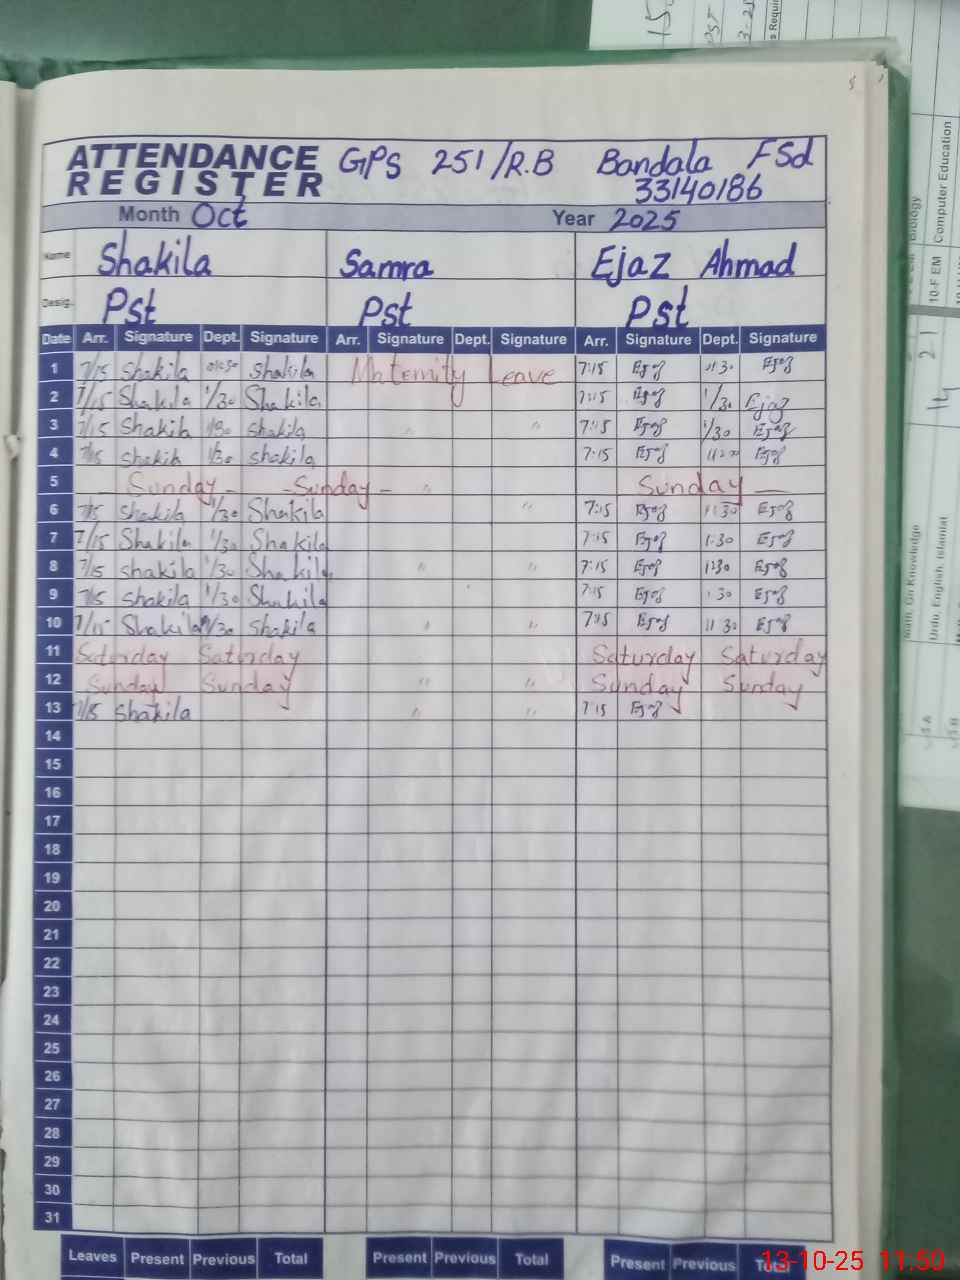 ATTENDANCE REGISTER GPS 251/R.B Bandala FSd
33140186
Month Oct Year 2025
Name Shakila Samra Ejaz Ahmad
Desig. Pst Pst Pst
Date Arr. Signature Dept. Signature Arr. Signature Dept. Signature Arr. Signature Dept. Signature
1 7/15 Shakila Shakila Maternity Leave 7:15 Ejaz 11:30 Ejaz
2 7/15 Shakila 1/30 Shakila 7:15 Ejaz 1/30 Ejaz
3 7/15 Shakila 1/30 Shakila " " 7:15 Ejaz 1/30 Ejaz
4 7/15 Shakila 1/30 Shakila 7:15 Ejaz Ejaz
5 Sunday - - Sunday - " Sunday -
6 7/15 Shakila 1/30 Shakila " 7:15 Ejaz 11:30 Ejaz
7 7/15 Shakila 1/30 Shakila 7:15 Ejaz 1:30 Ejaz
8 7/15 Shakila 1/30 Shakila " " 7:15 Ejaz 1:30 Ejaz
9 7/15 Shakila 1/30 Shakila 7:15 Ejaz 30 Ejaz
10 7/15 Shakila 1/30 Shakila " " 7:15 Ejaz 11 30 Ejaz
11 Saturday Saturday Saturday Saturday
12 Sunday Sunday " " Sunday Sunday
13 7/15 Shakila " " 7:15 Ejaz
14
15
16
17
18
19
20
21
22
23
24
25
26
27
28
29
30
31
Leaves Present Previous Total Present Previous Total Present Previous Total
13-10-25 11:50
Biology
10-F EM Computer Education
Math, Gn Knowledge
Urdu, English, Islamiat
14 21
15
PST